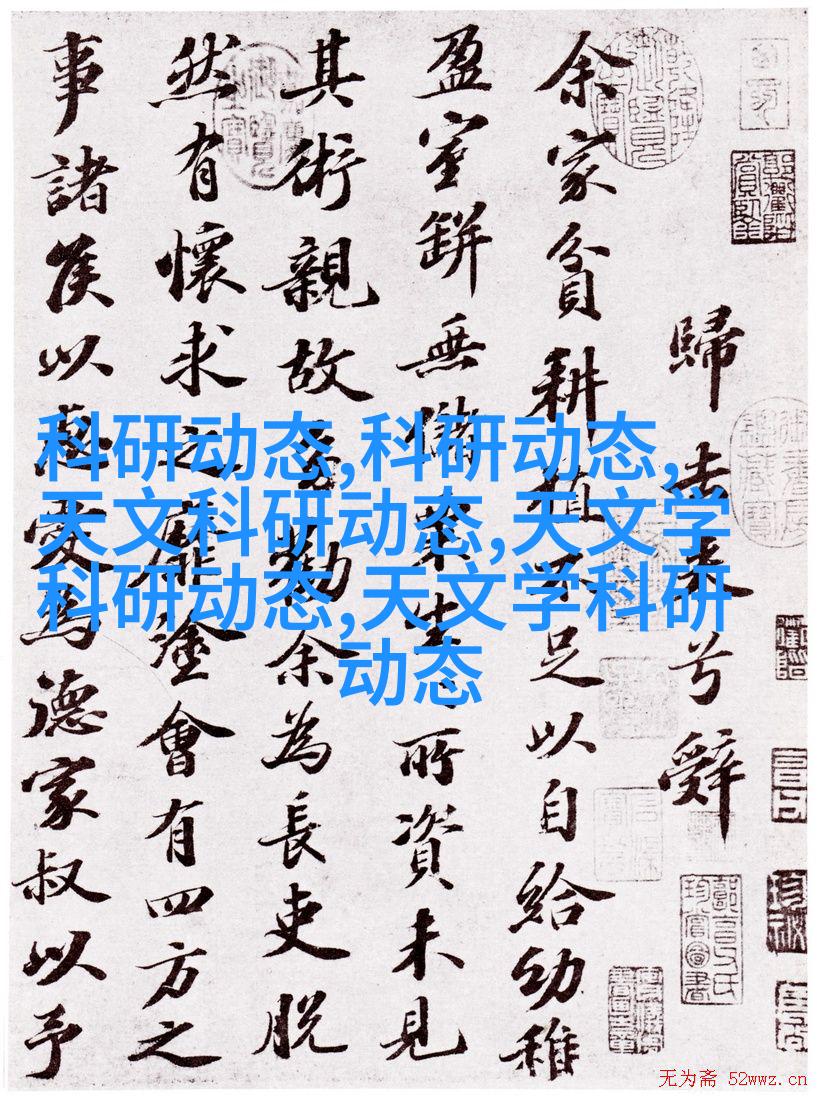 歸去来兮辭
余家貧耕植不足以自給幼稚
盈室缾無儲粟生〻所資未見
其術親故多勸余為長吏脫
然有懷求之靡途會有四方之
事諸侯以惠愛為德家叔以予
科研动态,科研动态,
天文科研动态,天文学
科研动态,天文学科研
动态
无为斋 52wwz.cn